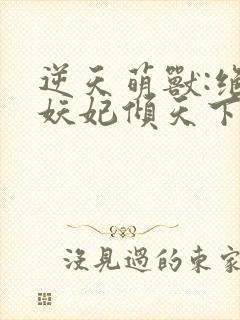 逆天萌獸:絕
妖妃傾天下
沒見過的東家